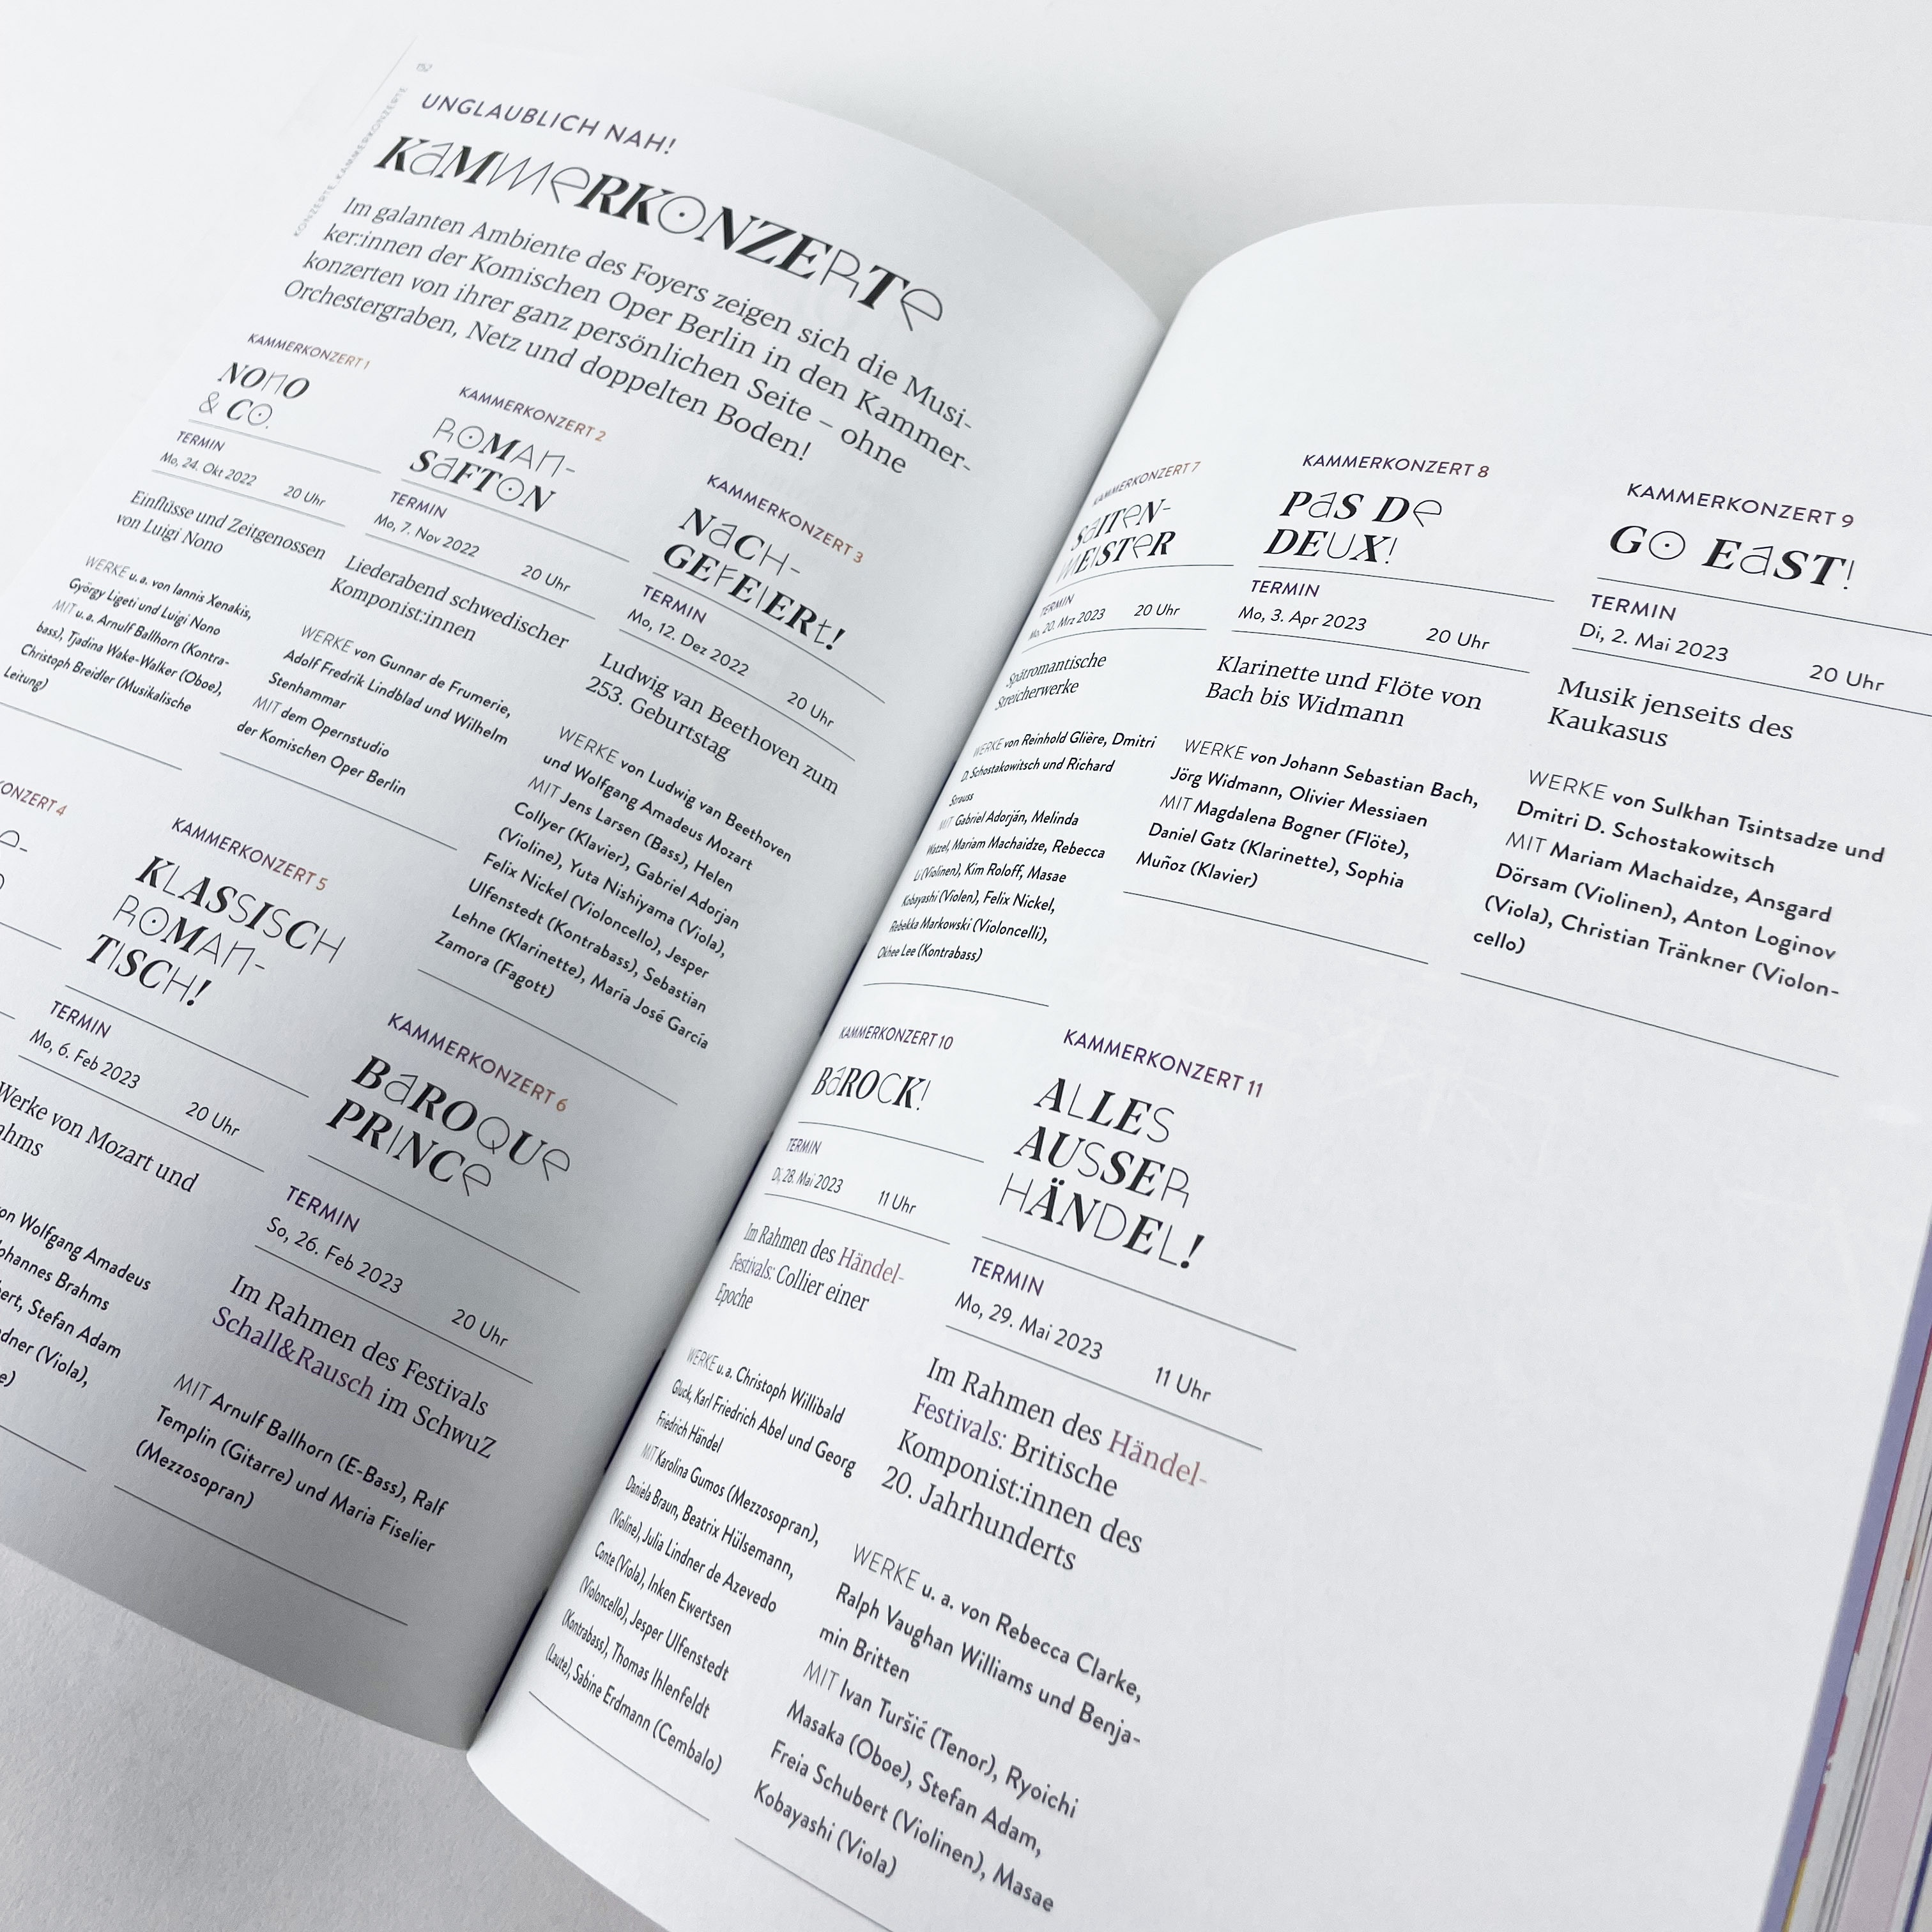 152
KONZERTE, KAMMERKONZERTE
UNGLAUBLICH NAH!
KaMMeRKONZERTe
Im galanten Ambiente des Foyers zeigen sich die Musi-
ker:innen der Komischen Oper Berlin in den Kammer-
konzerten von ihrer ganz persönlichen Seite – ohne
Orchestergraben, Netz und doppelten Boden!
KAMMERKONZERT 1
NOnO
& CO.
TERMIN
Mo, 24. Okt 2022 20 Uhr
Einflüsse und Zeitgenossen
von Luigi Nono
WERKE u. a. von Iannis Xenakis,
György Ligeti und Luigi Nono
MIT u. a. Arnulf Ballhorn (Kontra-
bass), Tjadina Wake-Walker (Oboe),
Christoph Breidler (Musikalische
Leitung)
KAMMERKONZERT 2
ROMAn-
SaFTON
TERMIN
Mo, 7. Nov 2022 20 Uhr
Liederabend schwedischer
Komponist:innen
WERKE von Gunnar de Frumerie,
Adolf Fredrik Lindblad und Wilhelm
Stenhammar
MIT dem Opernstudio
der Komischen Oper Berlin
KAMMERKONZERT 3
NaCH-
GEFEIERt!
TERMIN
Mo, 12. Dez 2022 20 Uhr
Ludwig van Beethoven zum
253. Geburtstag
WERKE von Ludwig van Beethoven
und Wolfgang Amadeus Mozart
MIT Jens Larsen (Bass), Helen
Collyer (Klavier), Gabriel Adorjan
(Violine), Yuta Nishiyama (Viola),
Felix Nickel (Violoncello), Jesper
Ulfenstedt (Kontrabass), Sebastian
Lehne (Klarinette), María José García
Zamora (Fagott)
ONZERT 4
e-
KAMMERKONZERT 5
KLASSISCH
ROMAn-
TISCH!
TERMIN
Mo, 6. Feb 2023 20 Uhr
Werke von Mozart und
ahms
on Wolfgang Amadeus
ohannes Brahms
bert, Stefan Adam
dner (Viola),
e)
KAMMERKONZERT 6
BaROQUe
PRINCe
TERMIN
So, 26. Feb 2023 20 Uhr
Im Rahmen des Festivals
Schall&Rausch im SchwuZ
MIT Arnulf Ballhorn (E-Bass), Ralf
Templin (Gitarre) und Maria Fiselier
(Mezzosopran)
KAMMERKONZERT 7
SaITeN-
MEISTeR
TERMIN
Mo, 20. Mrz 2023 20 Uhr
Spätromantische
Streicherwerke
WERKE von Reinhold Glière, Dmitri
D. Schostakowitsch und Richard
Strauss
MIT Gabriel Adorján, Melinda
Watzel, Mariam Machaidze, Rebecca
Li (Violinen), Kim Roloff, Masae
Kobayashi (Violen), Felix Nickel,
Rebekka Markowski (Violoncelli),
Okhee Lee (Kontrabass)
KAMMERKONZERT 8
PaS De
DEUX!
TERMIN
Mo, 3. Apr 2023 20 Uhr
Klarinette und Flöte von
Bach bis Widmann
WERKE von Johann Sebastian Bach,
Jörg Widmann, Olivier Messiaen
MIT Magdalena Bogner (Flöte),
Daniel Gatz (Klarinette), Sophia
Muñoz (Klavier)
KAMMERKONZERT 9
GO EaST!
TERMIN
Di, 2. Mai 2023 20 Uhr
Musik jenseits des
Kaukasus
WERKE von Sulkhan Tsintsadze und
Dmitri D. Schostakowitsch
MIT Mariam Machaidze, Ansgard
Dörsam (Violinen), Anton Loginov
(Viola), Christian Tränkner (Violon-
cello)
KAMMERKONZERT 10
BaROCK!
TERMIN
Di, 28. Mai 2023 11 Uhr
Im Rahmen des Händel-
Festivals: Collier einer
Epoche
WERKE u. a. Christoph Willibald
Gluck, Karl Friedrich Abel und Georg
Friedrich Händel
MIT Karolina Gumos (Mezzosopran),
Daniela Braun, Beatrix Hülsemann,
(Violine), Julia Lindner de Azevedo
Conte (Viola), Inken Ewertsen
(Violoncello), Jesper Ulfenstedt
(Kontrabass), Thomas Ihlenfeldt
(Laute), Sabine Erdmann (Cembalo)
KAMMERKONZERT 11
ALLES
AUSSER
HÄNDEL!
TERMIN
Mo, 29. Mai 2023 11 Uhr
Im Rahmen des Händel-
Festivals: Britische
Komponist:innen des
20. Jahrhunderts
WERKE u. a. von Rebecca Clarke,
Ralph Vaughan Williams und Benja-
min Britten
MIT Ivan Turšić (Tenor), Ryoichi
Masaka (Oboe), Stefan Adam,
Freia Schubert (Violinen), Masae
Kobayashi (Viola)